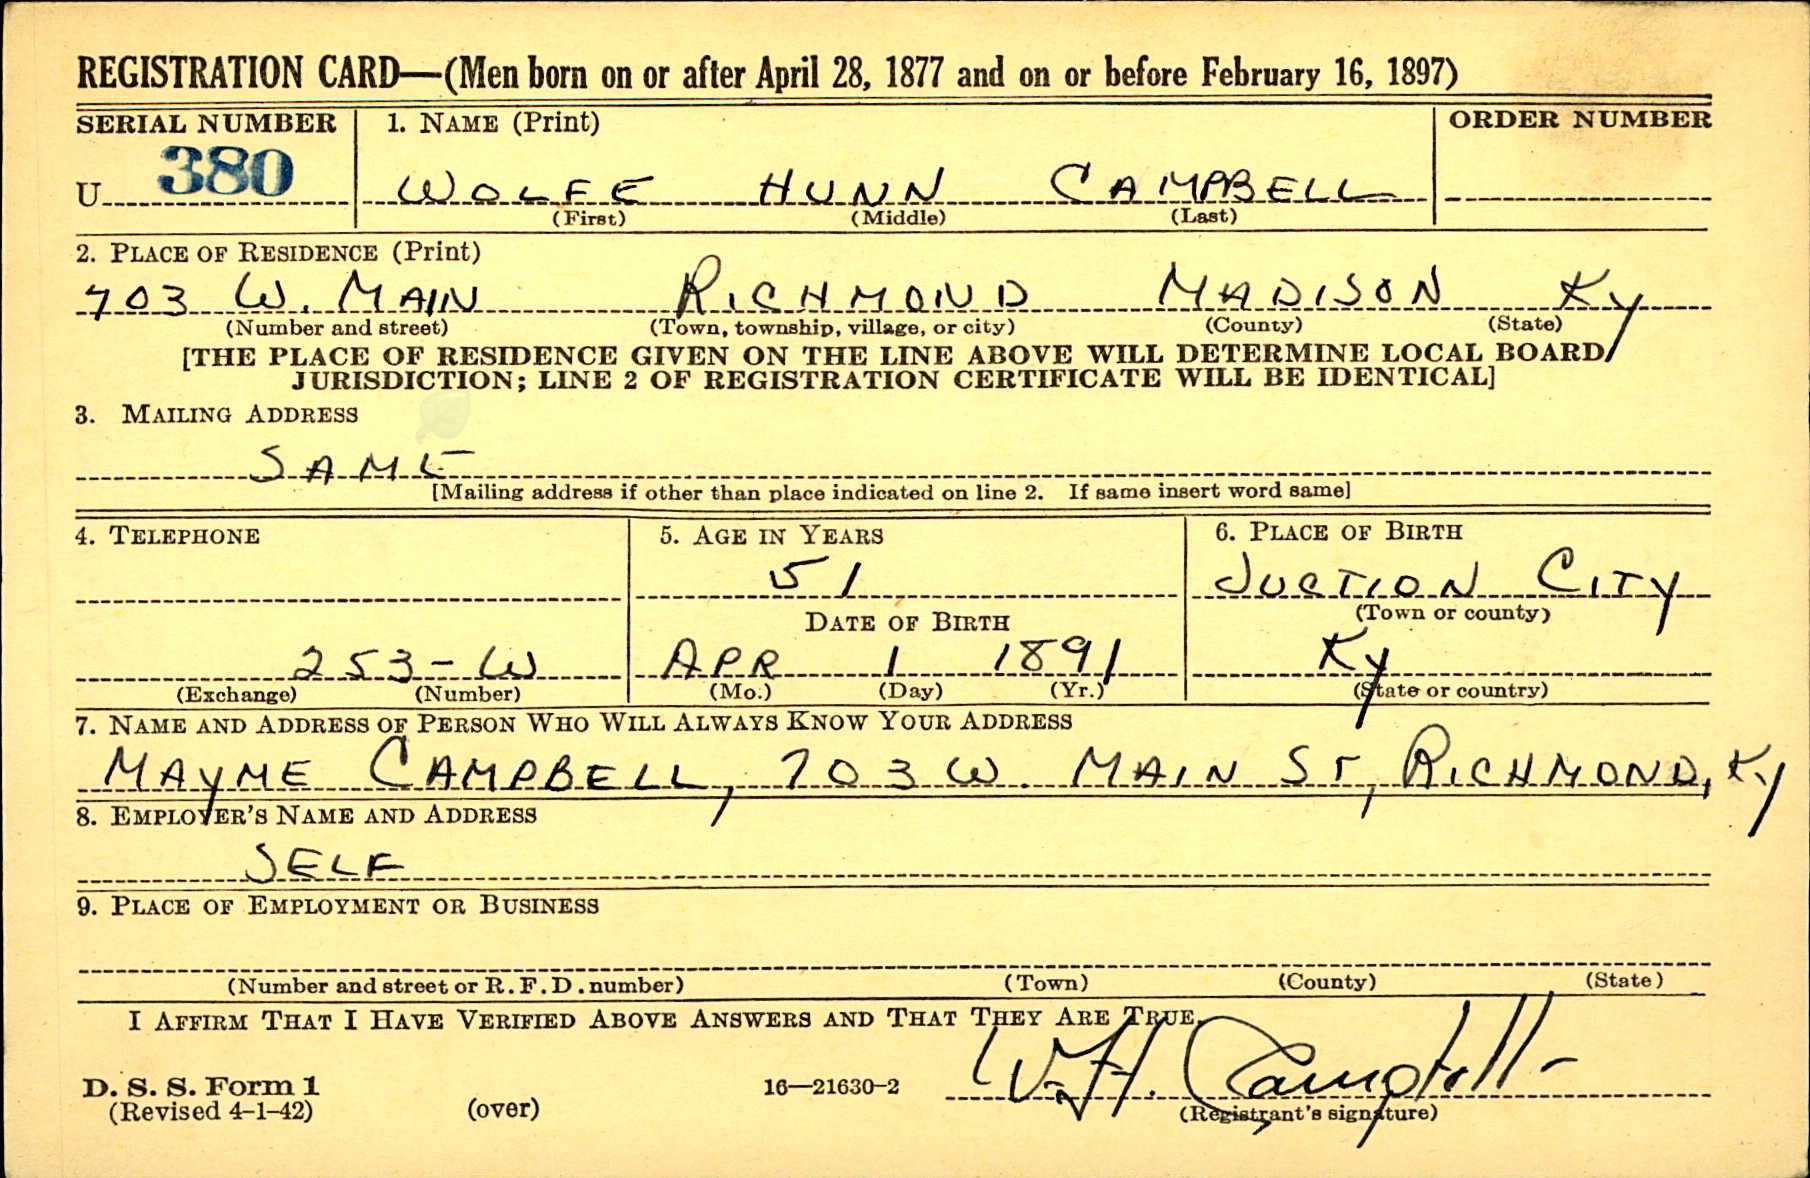 REGISTRATION CARD—(Men born on or after April 28, 1877 and on or before February 16, 1897)
SERIAL NUMBER 1. NAME (Print) ORDER NUMBER
U 380 WOLFE HUNN CAMPBELL
(First) (Middle) (Last)
2. PLACE OF RESIDENCE (Print)
703 W. MAIN RICHMOND MADISON Ky
(Number and street) (Town, township, village, or city) (County) (State)
[THE PLACE OF RESIDENCE GIVEN ON THE LINE ABOVE WILL DETERMINE LOCAL BOARD
JURISDICTION; LINE 2 OF REGISTRATION CERTIFICATE WILL BE IDENTICAL]
3. MAILING ADDRESS
SAME
[Mailing address if other than place indicated on line 2. If same insert word same]
4. TELEPHONE 5. AGE IN YEARS 6. PLACE OF BIRTH
51 JUCTION CITY
DATE OF BIRTH (Town or county)
253-W APR 1 1891 Ky
(Exchange) (Number) (Mo.) (Day) (Yr.) (State or country)
7. NAME AND ADDRESS OF PERSON WHO WILL ALWAYS KNOW YOUR ADDRESS
MAYME CAMPBELL, 703 W. MAIN ST, RICHMOND, Ky
8. EMPLOYER'S NAME AND ADDRESS
SELF
9. PLACE OF EMPLOYMENT OR BUSINESS
(Number and street or R. F. D. number) (Town) (County) (State)
I AFFIRM THAT I HAVE VERIFIED ABOVE ANSWERS AND THAT THEY ARE TRUE.
D. S. S. Form 1 16—21630-2 W. H. Campbell
(Revised 4-1-42) (over) (Registrant's signature)